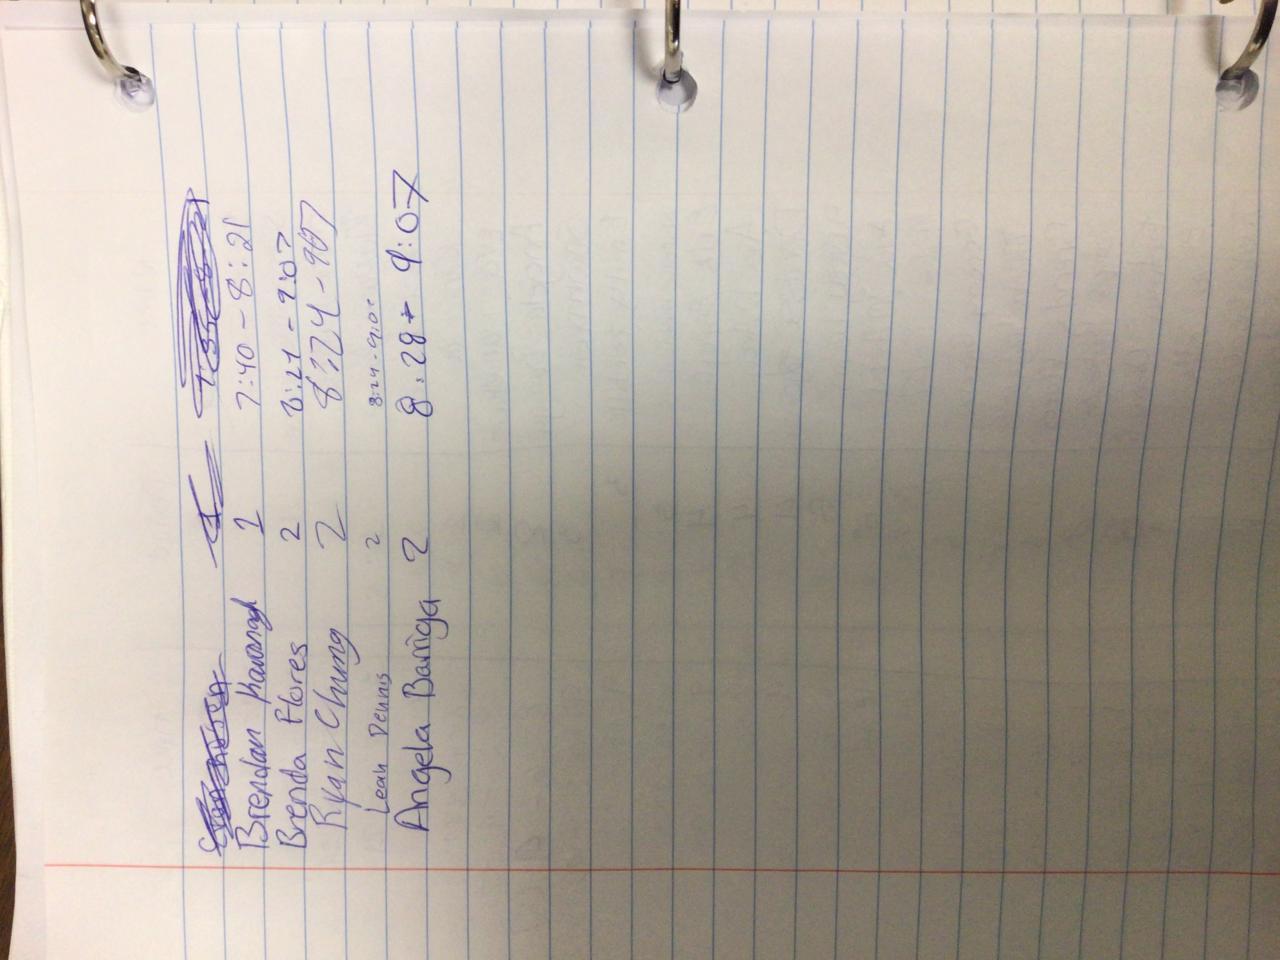 Brendan Kavanagh 1 7:40 - 8:21
Brenda Flores 2 8:21 - 9:07
Ryan Chung 2 8:24 - 907
Leah Dennis 2 8:24 -
Angela Barriga 2 8:28 - 9:07